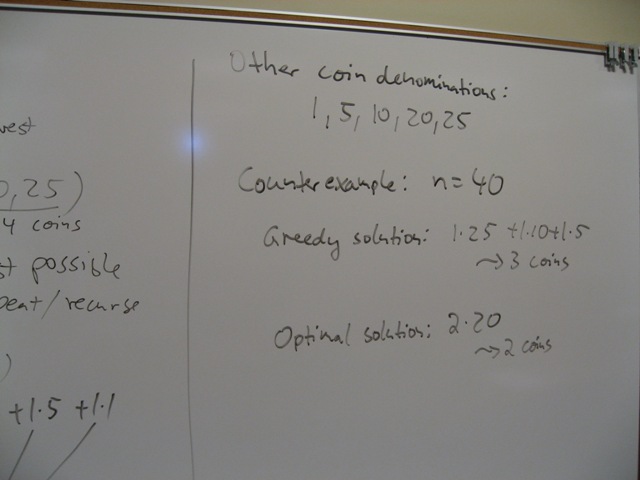 Other coin denominations:
1, 5, 10, 20, 25
Counterexample: n=40
Greedy solution: 1·25 +1·10+1·5
~> 3 coins
Optimal solution: 2·20
~> 2 coins
0, 25)
4 coins
possible
/recurse
)
+1·5 +1·1